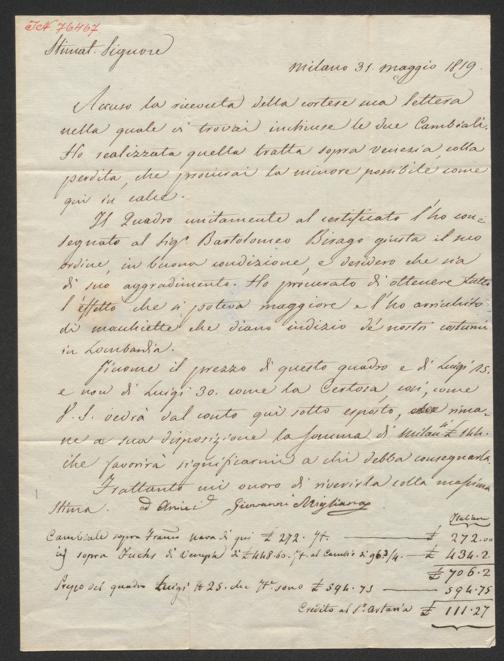 I.N. 76467
Stimat. Signore
Milano 31. maggio 1819.
Accuso la ricevuta della cortese sua lettera
nella quale vi trovai inchiuse le due Cambiali.
Ho realizzata quella tratta sopra Venezia, colla
perdita, che procurai la minore possibile come
qui in calce.
Il Quadro unitamente al certificato l'ho con=
segnato al Sigr. Bartolomeo Birago giusta il suo
ordine, in buona condizione, e desidero che sia
di suo aggradimento. Ho procurato di ottenere tutto
l'effetto che si poteva maggiore e l'ho arricchito
di macchiette che diano indizio de' nostri costumi
in Lombardia.
Siccome il prezzo di questo quadro e di Luigi 25.
e non di Luigi 30. come la Certosa, così, come
V. S. vedrà dal conto qui sotto esposto, rima=
ne a sua disposizione la somma di
che favorirà significarmi a chi debba consegnarla.
Frattanto mi onoro di riverirla colla massima
Stima. ed Amico Giovanni Migliara
Italiane
Cambiale sopra Nava di qui £ 272. — £ 272.00
sopra Fuchs di Venezia di £ 448.60. al Cambio di 96 3/4. — £ 434.2
£ 706.2
Prezzo del quadro Luigi 25. che sono £ 594.75 — 594.75
Credito al Sr. Artaria £ 111.27